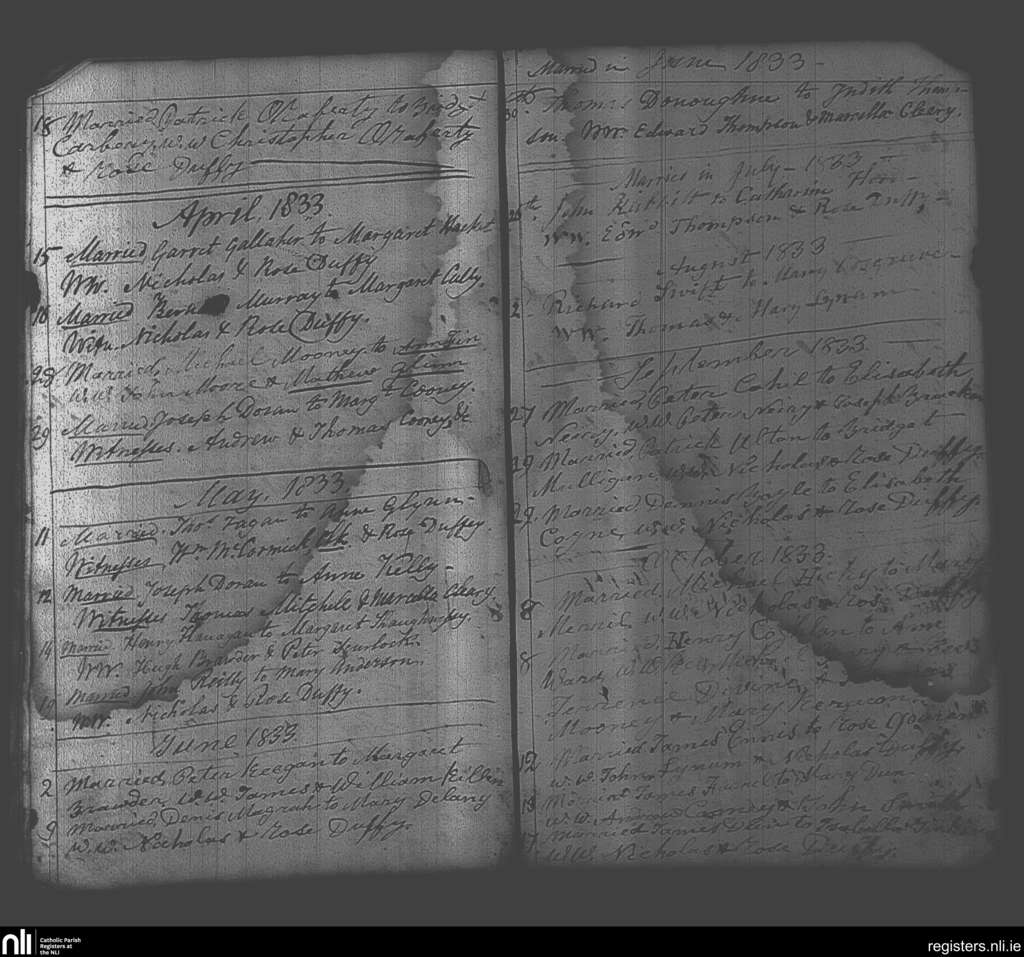 18 Married Patrick O'Rafferty to Bridgt
Carbery W.W Christopher O'Raferty
& Rose Duffy
April, 1833.
15 Married Garret Gallaher to Margaret Hacket
WW. Nicholas & Rose Duffy
18 Married Murray to Margaret Cully.
Witn. Nicholas & Rose Duffy.
28 Married, Michael Mooney to
W.W. John Moore & Mathew Glinn
29 Married Joseph Doran to Margt Cooney.
Witnesses. Andrew & Thomas Cooney, &c
May, 1833
11 Married. Thos. Fagan to Anne Glynn-
Witnesses Wm. McCormick, & Rose Duffey.
12 Married Joseph Doran to Anne Kelly-
Witnesses Thomas Mitchele & Marcella Cleary.
14 Married Henry Flanagan to Margaret Shaughnessy.
WW. Hugh Brawder & Peter Scurlock.
Married John Reilly to Mary Anderson.
WW. Nicholas & Rose Duffy.
June 1833.
2 Married, Peter Keegan to Margaret
Brawder, W.W. James & William Killin
9 Married Denis Magrah to Mary Delany
W.W. Nicholas & Rose Duffy.
Married in June 1833-
30 Thomas Donoughue to Judith Thomp-
son. WW. Edward Thompson & Marcella Cleary.
Married in July - 1833
John to Catharine
WW. Edwd Thompson & Rose Duffy-
August 1833
2 Richard Swift to Mary Cosgrieve-
WW. Thomas & Mary Lynam
September 1833
27 Married, Peter Cahil to Elisabeth
Neary. W.W Peter Neary & Joseph Bracken
29 Married Patrick to Bridget
Mulligan, W.W. Nicholas & Rose Duffy.
29. Married Dennis Boyle to Elisabeth
Coyne, W.W. Nicholas & Rose Duffy.
October 1833.
8 Married, Michael Hicky to Mary
W.W. Nicholas & Rose Duffy
8 Married Henry to Anne
Ward, W.W
Mooney & Mary
12 Married James Ennis to Rose
W.W. John Lynam & Nicholas Duffy
13 Married James to Mary
W.W. Andrew Cooney & John Smith
Married James to Isabella
W.W. Nicholas & Rose Duffy.
nli
Catholic Parish
Registers at
the NLI
registers.nli.ie